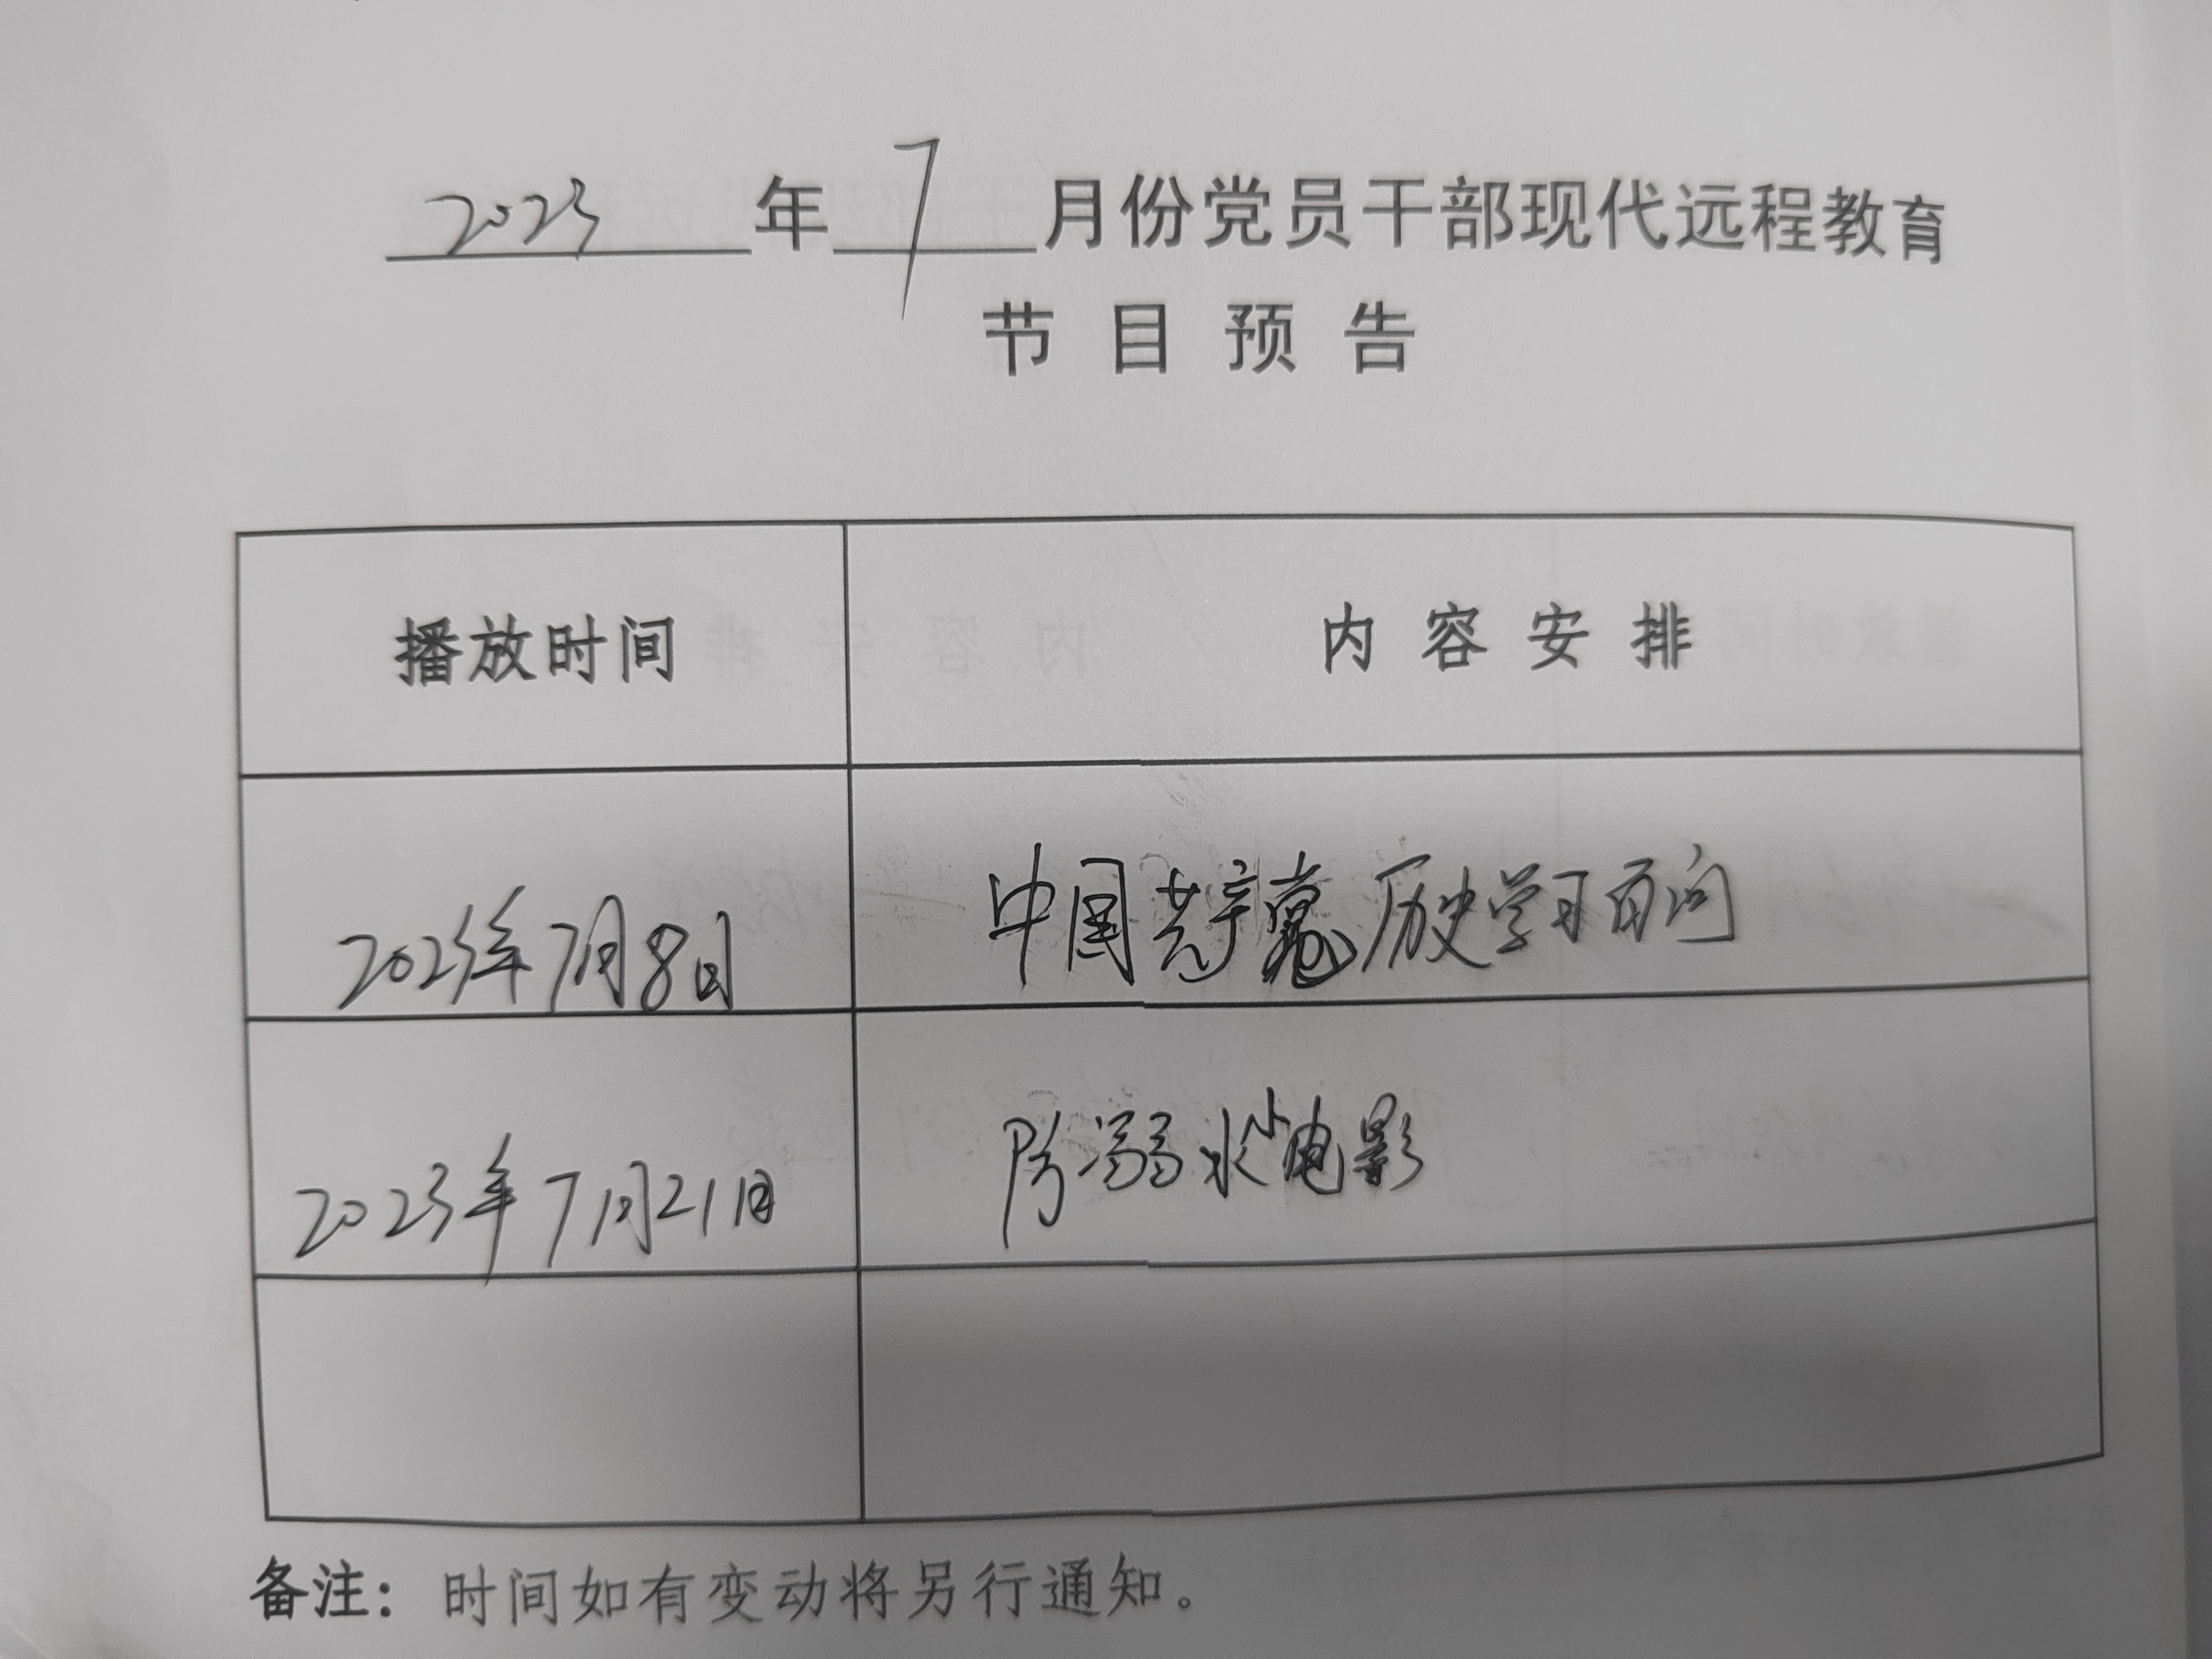 2023年7月份党员干部现代远程教育
节目预告
播放时间 内容安排
2023年7月8日 中国共产党历史学习百问
2023年7月21日 防溺水小电影
备注：时间如有变动将另行通知。